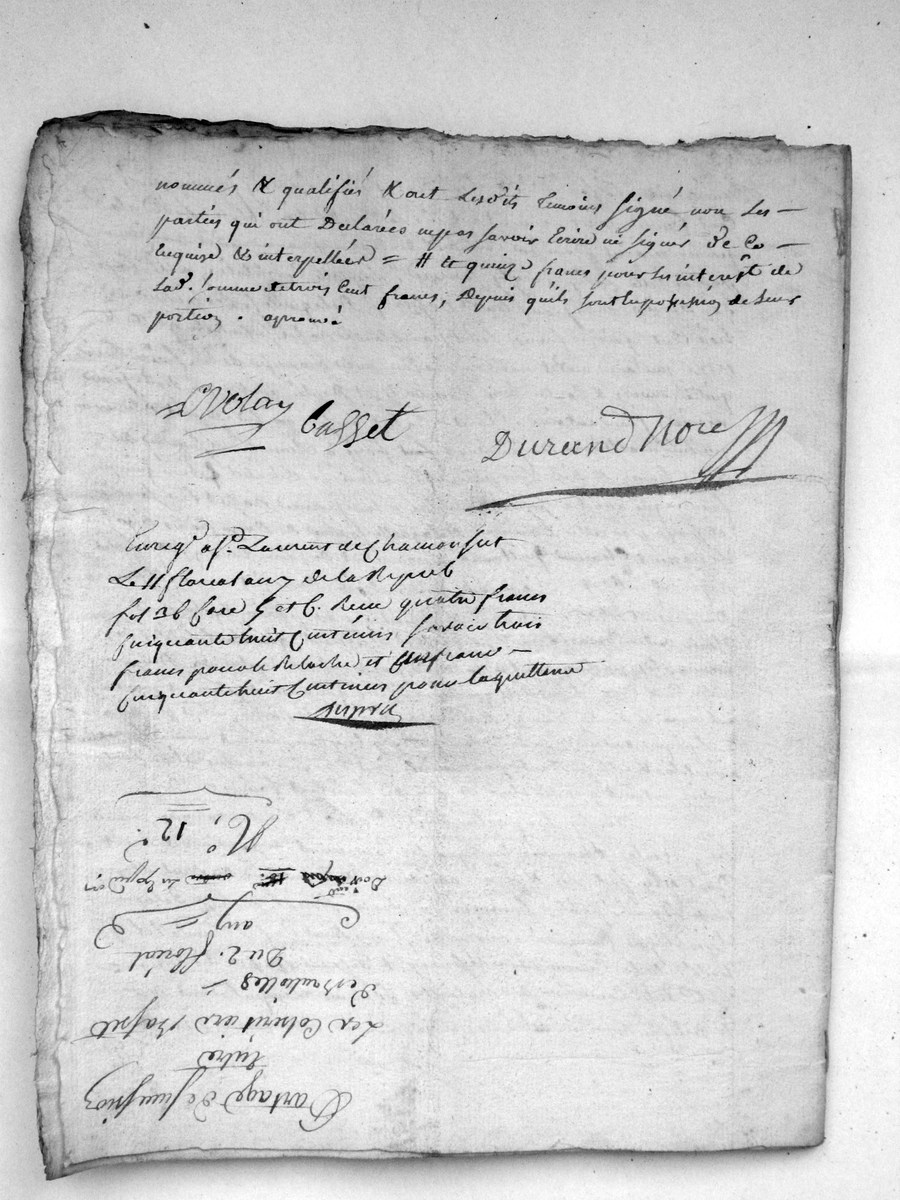 nommés & qualifiés & ont lesdits temoins signé non les
parties qui ont Declarées ne pas savoir Ecrire ni signer de ce
Enquise & interpellées = # et quinze francs pour les interest de
lad. somme de trois Cent francs, Depuis qu'ils sont en possession de leur
portion . aprouvé
Volay Casset Durand Nore
Enreg. a St. Laurent de Chamousset
Le 11 floreal an 7 de la Repub
fol 36 Case 5 et 6. Reçu quatre francs
Cinquante huit Centimes savoir trois
francs pour le Relache et un franc
Cinquante huit Centimes pour la quittance
Partage De succession
Entre
Les Cohéritiers
Du 2. floréal
an 7
N.° 12